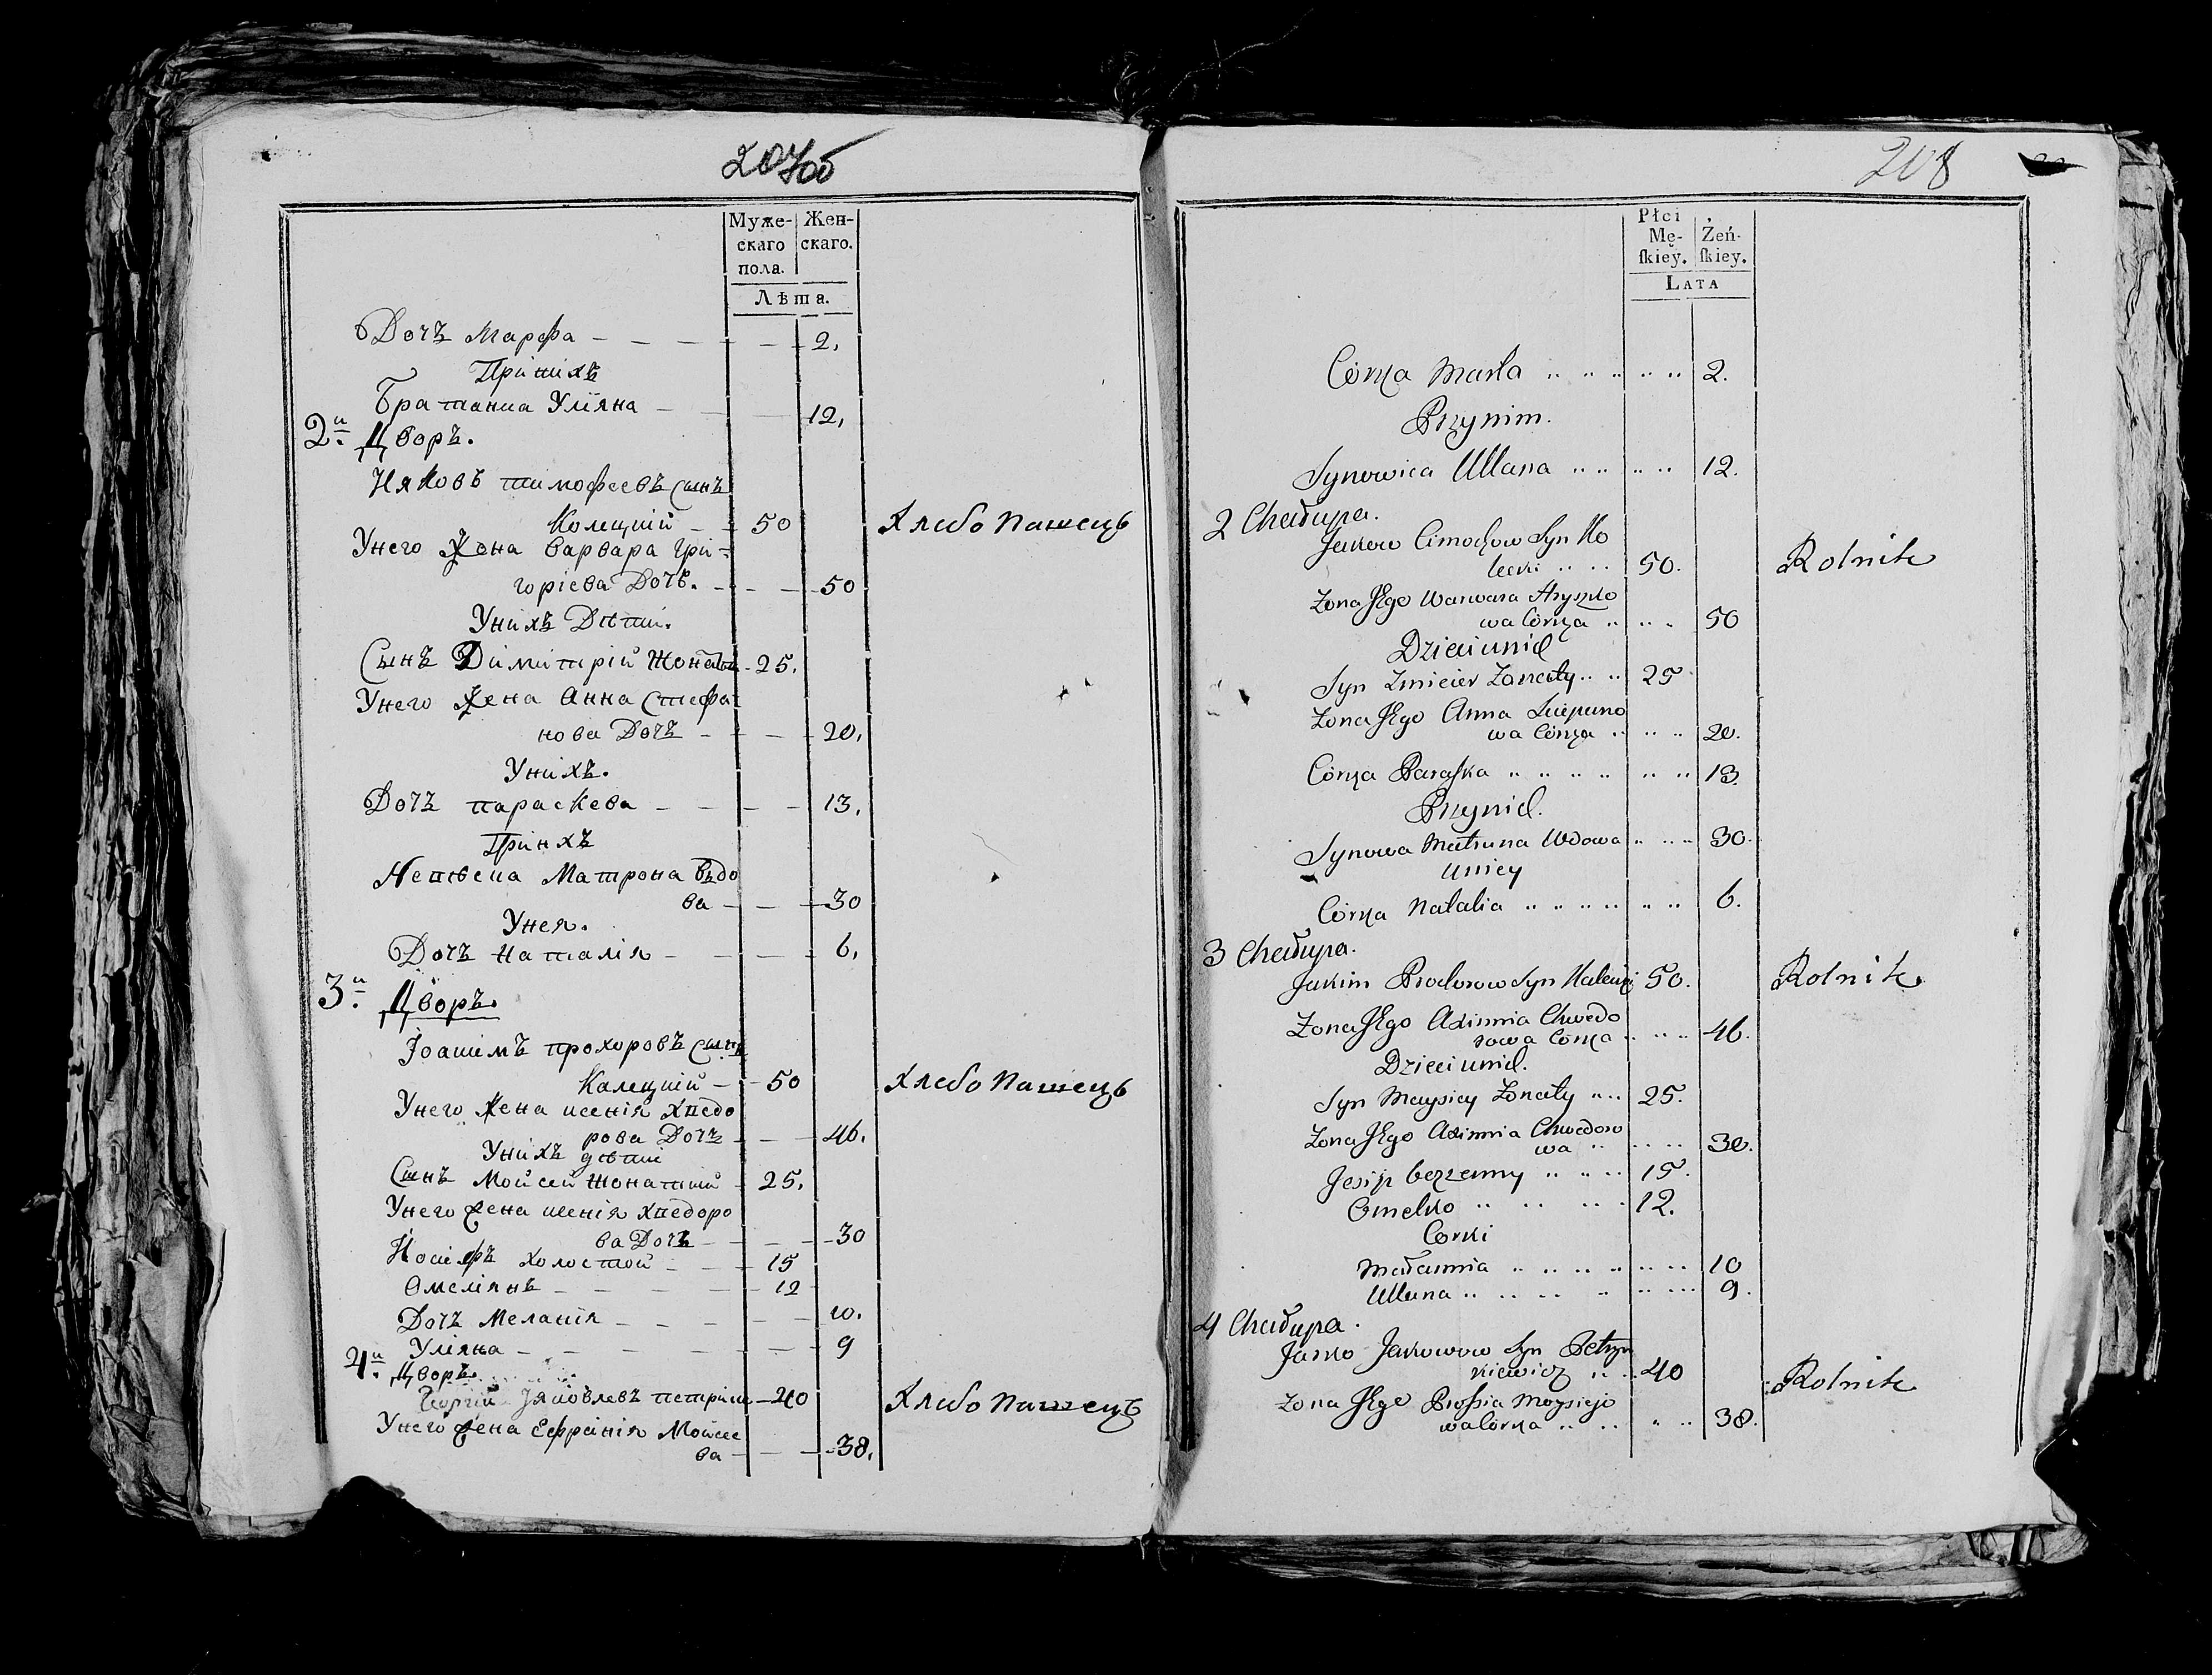 207об
Муже-
скаго
пола.
Жен-
скаго.
Лѣта.
Дочъ Марфа 2.
При нихъ
Братаниа Уліяна 12.
2й Дворъ.
Ияковъ тимофеевъ Сынъ
Колецкій 50 Хлебо пашецъ
Унего Жена варвара гри-
горіева Дочъ. 50
Унихъ Дѣти.
Сынъ Димитрій жонатій 25.
Унего жена Анна Стефа-
нова Дочъ 20.
Унихъ.
Дочъ параскева 13.
При нхъ
Невѣсиа Матрона въдо
ва 30
Унея.
Дочъ Наталія 6.
3й Дворъ.
Іоакимъ прохоровъ Сынъ
Калецкій 50 Хлебо пашецъ
Унего жена ксенія хведо
рова Дочъ 46.
Унихъ дѣти
Сынъ Мойсей жонатій 25.
Унего жена ксенія хведоро
ва Дочъ 30
Иосифъ холостой 15
Омеліянъ 12
Дочъ Меланія 10.
Уліяна 9
4й Дворъ.
Іяковлевъ 40 Хлебо пашецъ
Унего жена Ефросінія Мойсее
ва 38.
208
Płci
Mę-
ſkiey.
Żeń-
ſkiey.
LATA
Córka Marta 2.
Przynim.
Synowica Ullana 12.
2 Chałupa.
Jakow Cimochow Syn Ko
lecki 50. Rolnik
Zona Jego Warwara Hryszko
wa Córka 50
Dzieci unich
Syn Zmicier Zonaty 25
Zona Jego Anna Sciepano
wa Córka 20.
Córka Paraska 13
Przynich.
Synowa Matruna Wdowa 30.
uniey
Córka Natalia 6.
3 Chałupa.
Jakim Prochorow Syn Kalecki 50. Rolnik
Zona Jego Axinnia Chwedo
rowa Córka 46.
Dzieci unich.
Syn Maysiey Zonaty 25.
Zona Jego Axinnia Chwedoro
wa 30.
Jesip bezzenny 15.
Omelko 12.
Corki
Małannia 10
Ullana 9.
4 Chałupa.
Jurko Jakowow Syn Petry
kiewicz 40 Rolnik
Zona Jego Prosia Moysiejo
wa Córka 38.